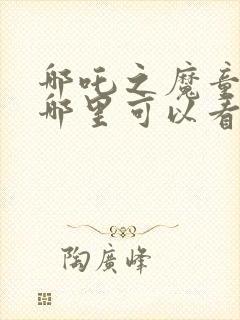 哪吒之魔童
哪里可以看
陶廣峰